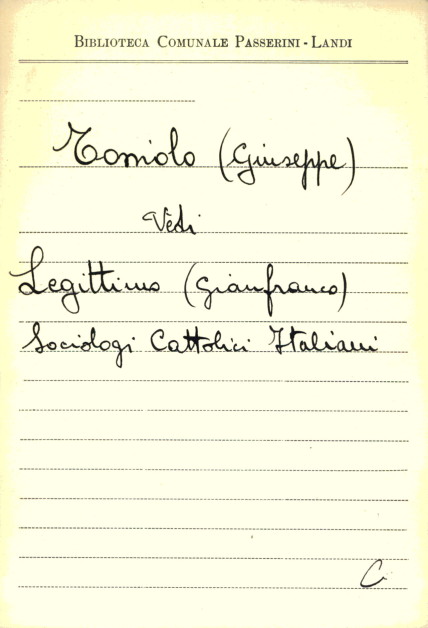 BIBLIOTECA COMUNALE PASSERINI - LANDI
Toniolo (Giuseppe)
Vedi
Legittimo (Gianfranco)
Sociologi Cattolici Italiani
C